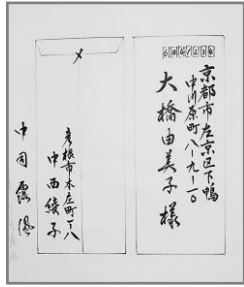 京都市左京区下鴨
中川原町八ー九ー一〇
大橋由美子様
〆
彦根市本庄町一ー八
中西綾子
中